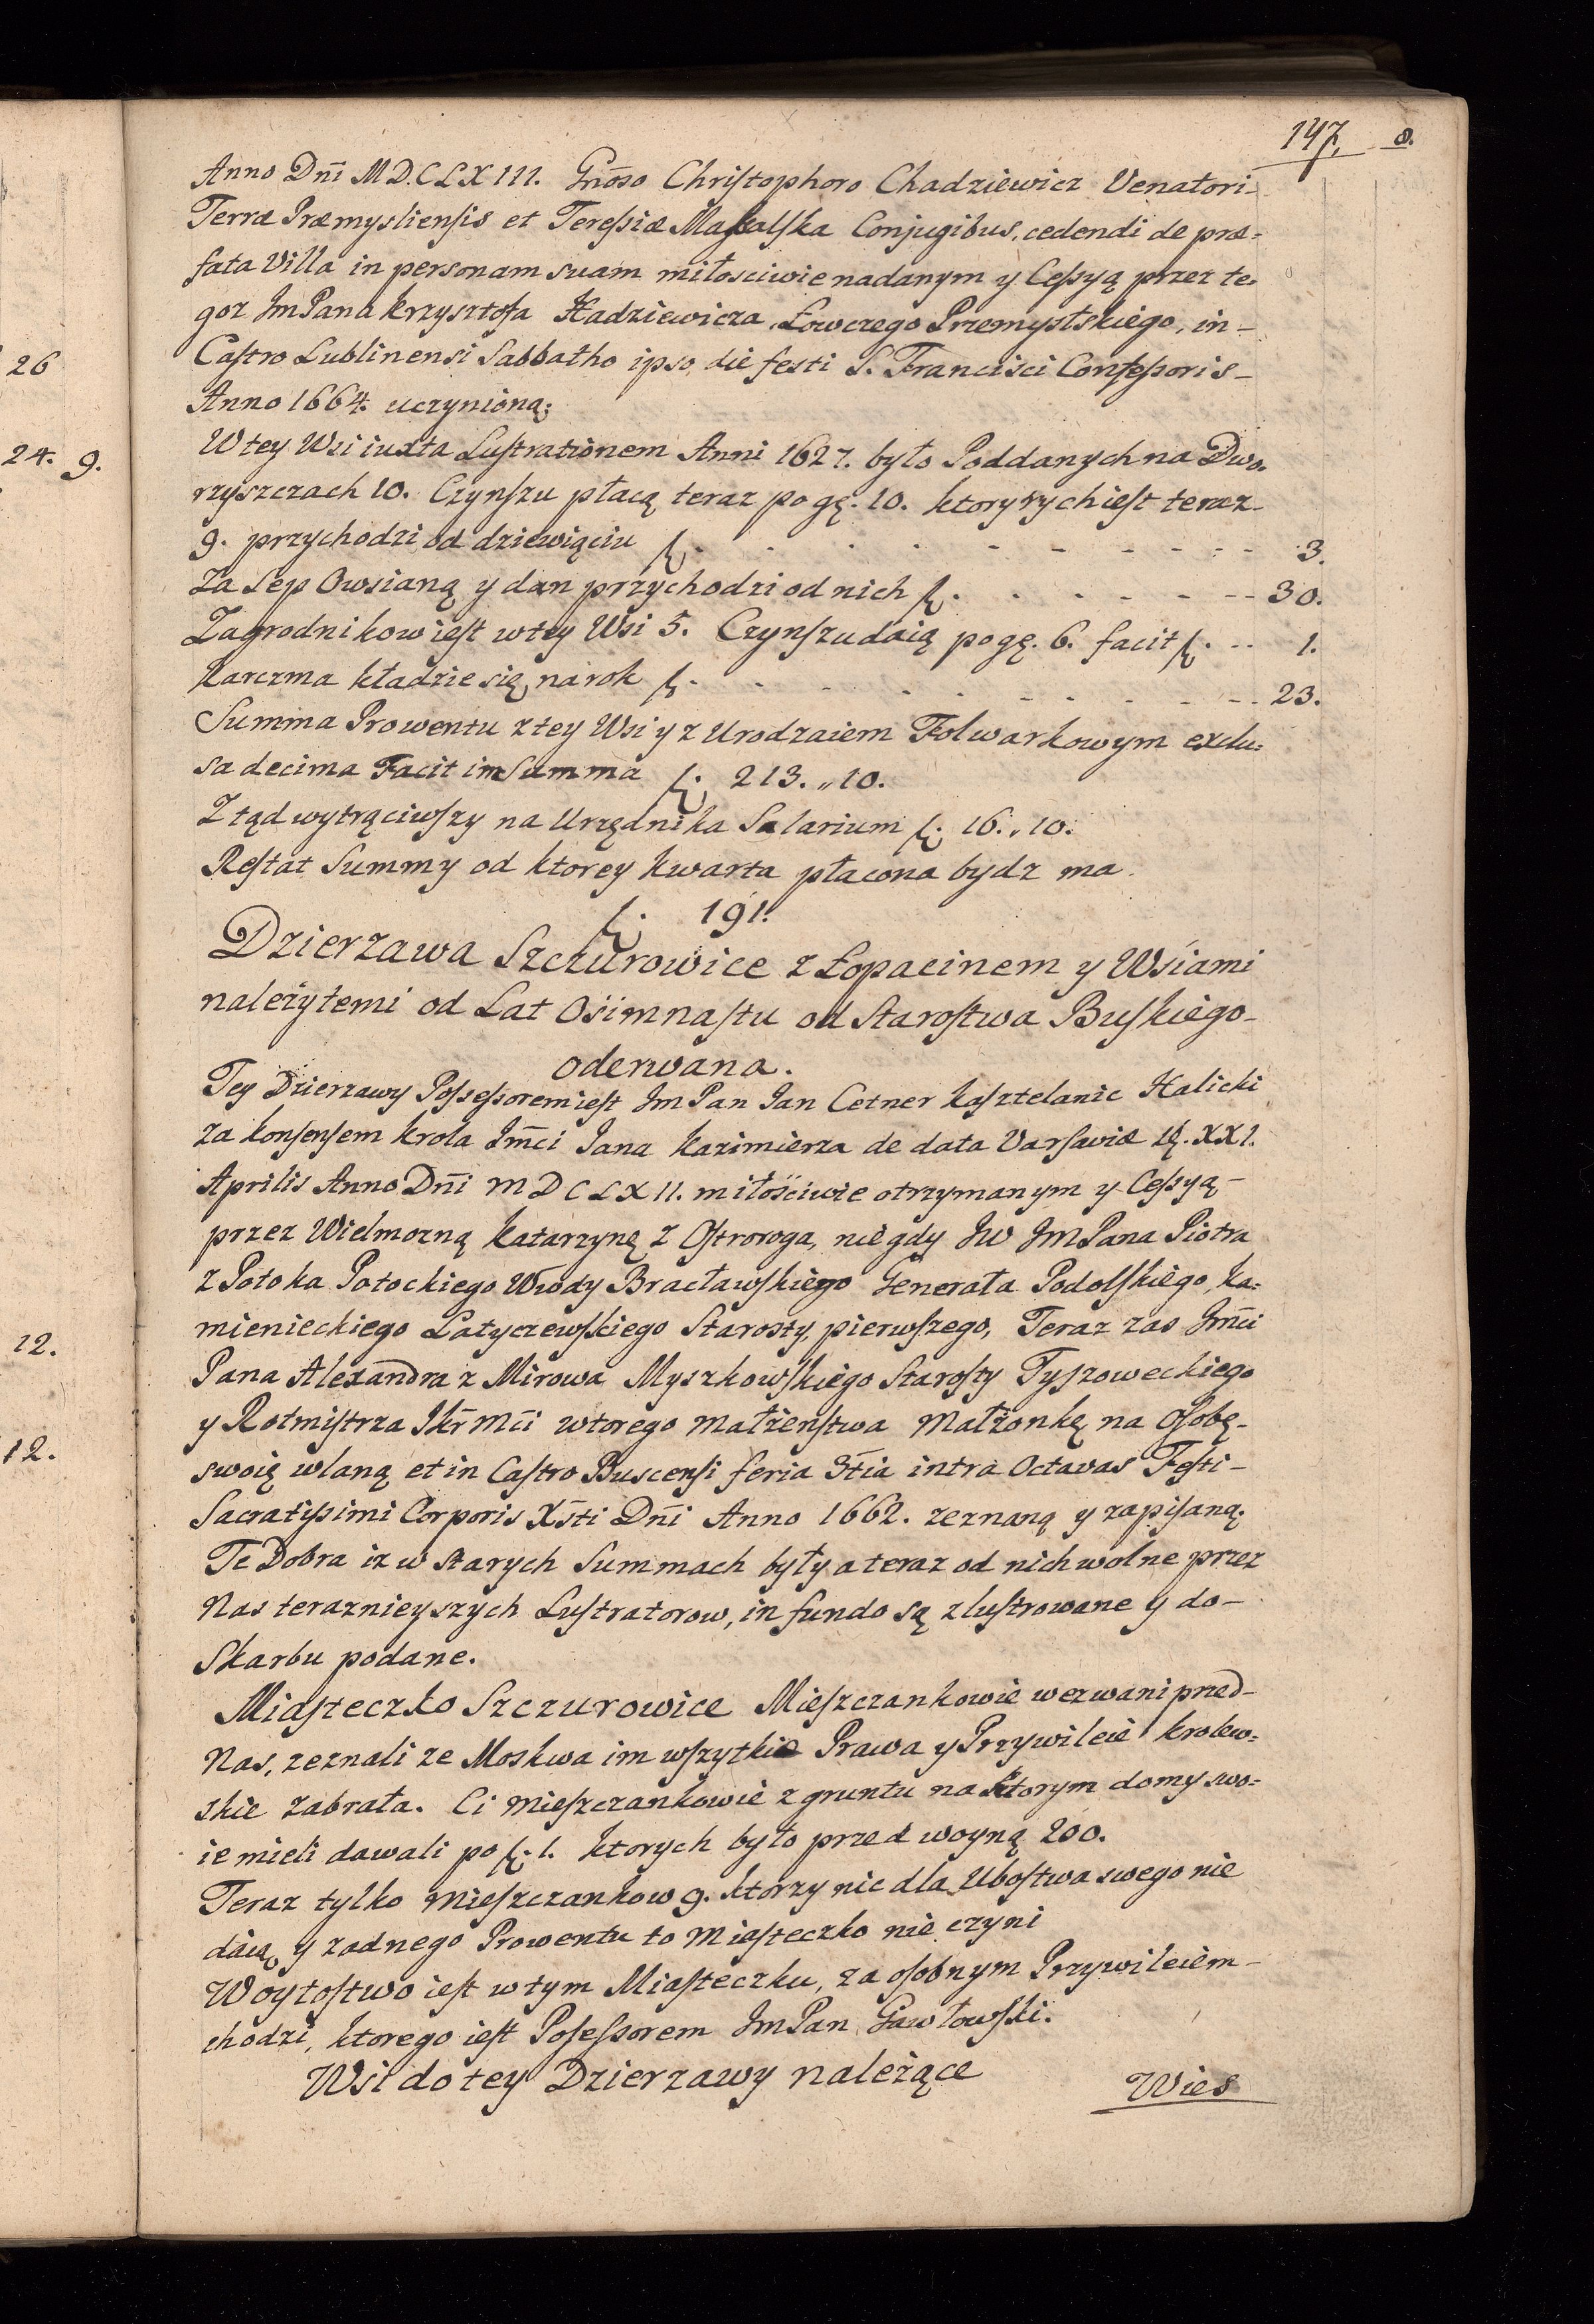 147. 8.
Anno Dni M D.C L X III. Gnoso Christophoro Chadziewicz Venatori-
Terræ Præmysliensis et Teressiæ Maskalska Conjugibus, cedendi de præ=
fata Villa in personam suam miłosciwie nadanym y Cessyą przez te-
goz Jm Pana Krzysztofa Hadziewicza, Łowczego Przemyslskiego, in-
Castro Lublinensi Sabbatho ipso die festi S. Francisci Confessoris-
Anno 1664. uczynioną;
W tey Wsi iuxta Lustrationem Anni 1627. było Poddanych na Dwo-
rzyszczach 10. Czynszu płacą teraz po gę. 10. ktorysych iest teraz-
9. przychodzi od dziewiąciu f. 3.
Za Sep Owsianą y dan przychodzi od nich f. 30.
Zagrodnikow iest w tey Wsi 5. Czynszu daią po gę. 6. facit f. 1.
Karczma kładzie się na rok f. 23.
Summa Prowentu z tey Wsi y z Urodzaiem Folwarkowym exclu=
sa decima Facit in Summa f. 213. „ 10.
Z tąd wytrąciwszy na Urzędnika Salarium f. 16. „ 10.
Restat Summy od ktorey kwarta płacona bydz ma.
f. 191.
Dzierzawa Szczurowice z Łopacinem y Wsiami
należytemi od Lat Osimnastu od Starostwa Buskiego-
oderwana.
Tey Dzierzawy Possessorem iest Jm Pan Jan Cetner Kasztelanic Halicki
za konsensem Krola Jmci Jana Kazimierza de data Varsaviæ XXI.
Aprilis Anno Dni M D C L X II. miłościwie otrzymanym y Cessyą-
przez Wielmozną Katarzynę z Ostroroga, niegdy JW JM Pana Piotra
z Potoka Potockiego Wwody Bracławskiego Generała Podolskiego, Ka=
mienieckiego Latyczewskiego Starosty, pierwszego, Teraz zas Jmci
Pana Alexandra z Mirowa Myszkowskiego Starosty Tyszoweckiego
y Rotmistrza JKr Mci wtorego małzenstwa Małżonkę na Osobę-
swoię wlaną et in Castro Buscensi feria 3tia intra Octavas Festi-
Sacratissimi Corporis Xsti Dni Anno 1662. zeznaną y zapisaną;
Te Dobra iz w starych Summach były a teraz od nich wolne przez
Nas teraznieyszych Lustratorow, in fundo są zlustrowane y do-
Skarbu podane.
Miasteczko Szczurowice Mieszczankowie wezwani przed-
Nas, zeznali ze Moskwa im wszytkie Prawa y Przywileie krolew=
skie zabrała. Ci Mieszczankowie z gruntu na ktorym domy swo=
ie mieli dawali po f. 1. ktorych było przed woyną 200.
Teraz tylko Mieszczankow 9. ktorzy nic dla Ubostwa swego nie
daią, y zadnego Prowentu to Miasteczko nie czyni
Woytostwo iest w tym Miasteczku, za osobnym Przywileiem-
chodzi, ktorego iest Posessorem Jm Pan Gawłowski.
Wsi do tey Dzierzawy należące
Wies
26
24. 9.
12.
12.